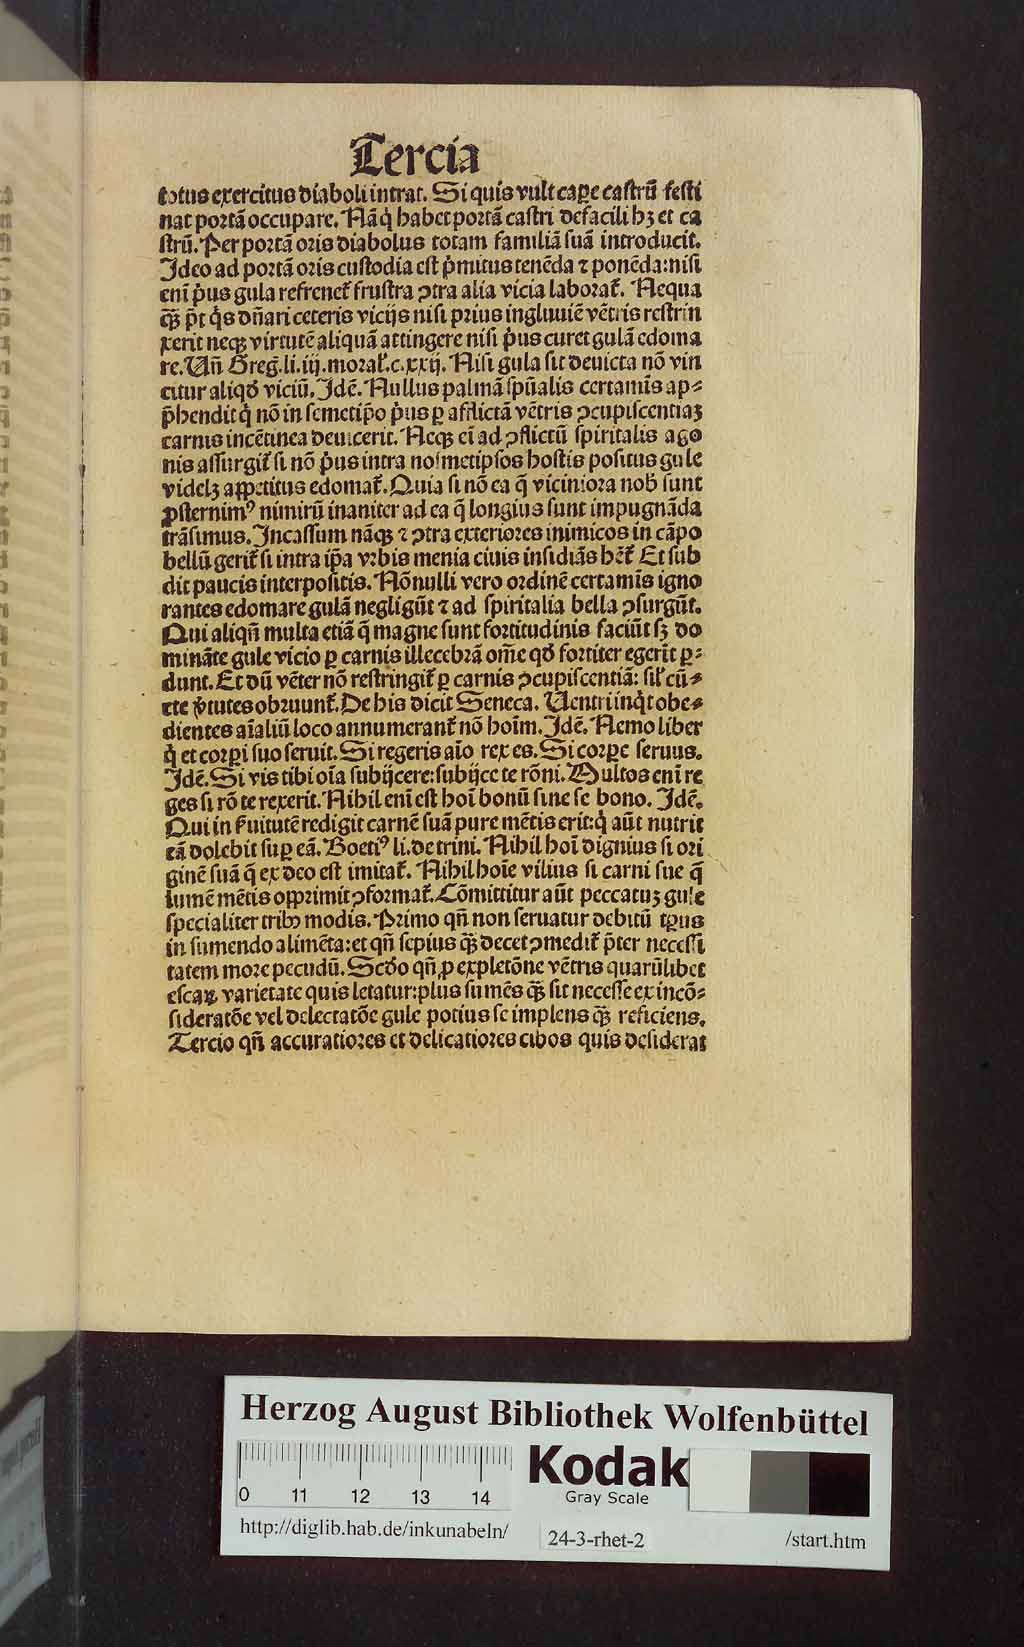 Tercia
totus exercitus diaboli intrat. Si quis vult cape castrū festi
nat portā occupare. Nāq̇ habet portā castri defacili hꝫ et ca
strū. Per portā oris diabolus totam familiā suā introducit.
Ideo ad portā oris custodia est p̄mitus tenēda ⁊ ponēda: nisi
enī p̄us gula refrenet̄ frustra ꝯtra alia vicia laborat̄. Nequa
qꝫ p̄t q̇s dn̄ari ceteris vicijs nisi prius ingluuiē vētris restrin
xerit neqꝫ virtutē aliquā attingere nisi p̄us curet gulā edoma
re. Un̄ Greg̃. li. iij. moral̃. c. xxij. Nisi gula sit deuicta nō vin
citur aliqđ viciū. Idē. Nullus palmā spūalis certamīs ap⸗
p̄hendit q̇ nō in semetip̄o p̄us ꝑ afflictā vētris ꝯcupiscentiaꝫ
carnis incētiuea deuicerit. Neqꝫ eī ad ꝯflictū spiritalis ago
nis assurgit̄ si nō p̄us intra nosmetipsos hostis positus gule
videlꝫ appetitus edomat̄. Quia si nō ea q̄ viciniora nob̄ sunt
ꝓsternimꝰ nimirū inaniter ad ea q̄ longius sunt impugnāda
trāsimus. Incassum nāqꝫ ⁊ ꝯtra exteriores inimicos in cāpo
bellū gerit̄ si intra ip̄a vrbis menia ciuis insidiās hēt̄ Et sub
dit paucis interpositis. Nōnulli vero ordinē certamīs igno
rantes edomare gulā negligūt ⁊ ad spiritalia bella ꝯsurgūt.
Qui aliqn̄ multa etiā q̄ magne sunt fortitudinis faciūt sꝫ do
mināte gule vicio ꝑ carnis illecebrā om̄e qđ fortiter egerīt ꝑ⸗
dunt. Et dū vēter nō restringit̄ ꝑ carnis ꝯcupiscentiā: sil̄ cū⸗
cte v̄tutes obruunt̄. De his dicit Seneca. Uentri inq̇t obe⸗
dientes aīaliū loco annumerant̄ nō hoīm. Idē. Nemo liber
q̇ et corpi suo seruit. Si regeris aīo rex es. Si corpe seruus.
Idē. Si vis tibi oīa subijcere: subijce te rōni. Multos enī re
ges si rō te rexerit. Nihil enī est hoī bonū sine se bono. Idē.
Qui in s̄uitutē redigit carnē suā pure mētis erit: q̇ aūt nutrit
eā dolebit suꝑ eā. Boetiꝰ li. de trini. Nihil hoī dignius si ori
ginē suā q̄ ex deo est imitat̄. Nihil hoīe vilius si carni sue q̄
lumē mētis opprimit ꝯformat̄. Cōmittitur aūt peccatuꝫ gule
specialiter tribꝫ modis. Primo qn̄ non seruatur debitū tp̄us
in sumendo alimēta: et qn̄ sepius qꝫ decet ꝯmedit̄ p̄ter necessi
tatem more pecudū. Scđo qn̄ ꝓ expletōne vētris quarūlibet
escaꝝ varietate quis letatur: plus sumēs qꝫ sit necesse ex incō⸗
sideratōe vel delectatōe gule potius se implens qꝫ reficiens.
Tercio qn̄ accuratiores et delicatiores cibos quis desiderat
Herzog August Bibliothek Wolfenbüttel
0 11 12 13 14
Kodak
Gray Scale
http://diglib.hab.de/inkunabeln/
24-3-rhet-2
/start.htm